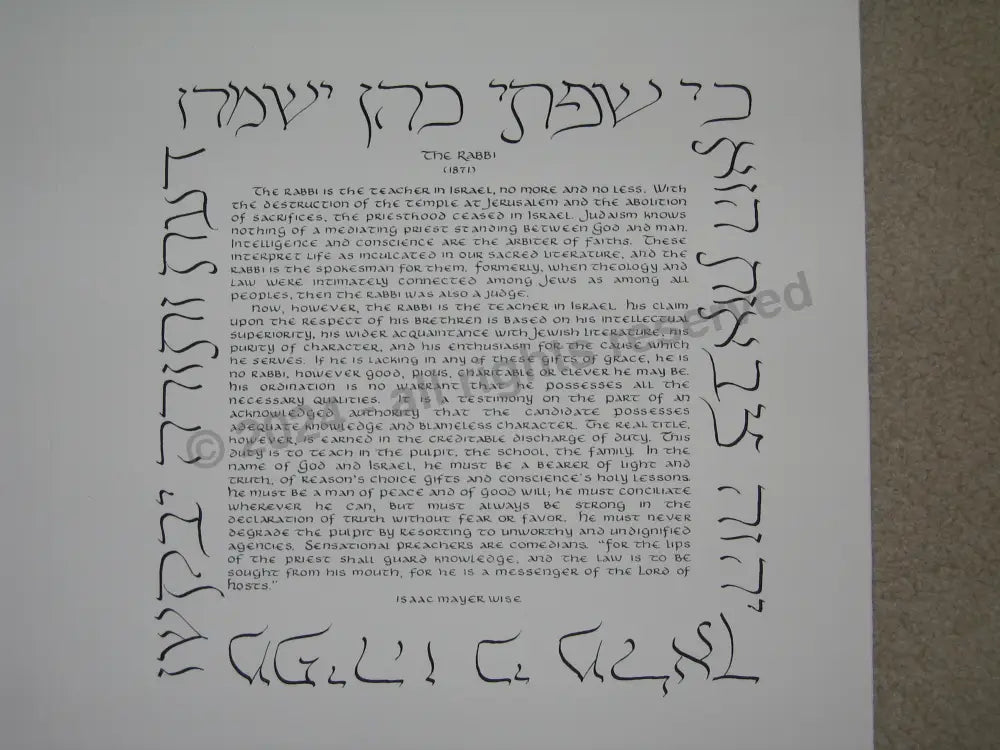 כי שפתי כהן ישמרו
דעת ותורה יבקשו
מפיהו כי מלאך
יהוה צבאות הוא
The Rabbi
(1871)
The rabbi is the teacher in Israel, no more and no less. With
the destruction of the temple at Jerusalem and the abolition
of sacrifices, the priesthood ceased in Israel. Judaism knows
nothing of a mediating priest standing between God and man.
Intelligence and conscience are the arbiter of faiths. These
interpret life as inculcated in our sacred literature, and the
rabbi is the spokesman for them. Formerly, when theology and
law were intimately connected among Jews as among all
peoples, then the rabbi was also a judge.
Now, however, the rabbi is the teacher in Israel. His claim
upon the respect of his brethren is based on his intellectual
superiority, his wider acquaintance with Jewish literature, his
purity of character, and his enthusiasm for the cause which
he serves. If he is lacking in any of these gifts of grace, he is
no rabbi, however good, pious, charitable or clever he may be.
His ordination is no warrant that he possesses all the
necessary qualities. It is a testimony on the part of an
acknowledged authority that the candidate possesses
adequate knowledge and blameless character. The real title,
however, is earned in the creditable discharge of duty. This
duty is to teach in the pulpit, the school, the family. In the
name of God and Israel, he must be a bearer of light and
truth, of reason's choice gifts and conscience's holy lessons.
He must be a man of peace and of good will; he must conciliate
wherever he can, but must always be strong in the
declaration of truth without fear or favor. He must never
degrade the pulpit by resorting to unworthy and undignified
agencies. Sensational preachers are comedians. "For the lips
of the priest shall guard knowledge, and the law is to be
sought from his mouth, for he is a messenger of the Lord of
hosts."
Isaac Mayer Wise
© 2024 - all rights reserved